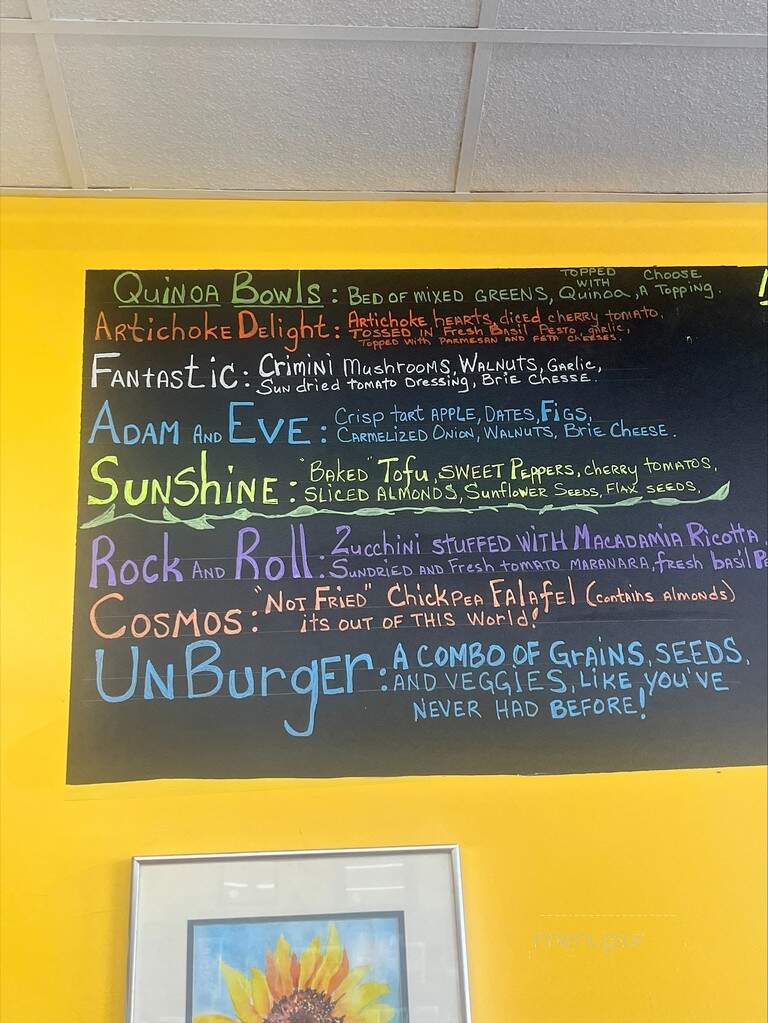 TOPPED CHOOSE
Quinoa Bowls : BED OF MIXED GREENS, WITH Quinoa, A TOPPING.
Artichoke Delight: Artichoke hearts, diced cherry tomato,
TOSSED IN Fresh Basil Pesto, garlic,
TOPPED WITH PARMESAN AND FETA CHEESES.
FANTASTIC: Crimini Mushrooms, Walnuts, Garlic,
Sun dried tomato Dressing, Brie Chesse.
ADAM AND EVE: Crisp tart APPLE, DATES, FIGS,
CARMELIZED ONION, WALNUTS, Brie CHEESE.
SUNShiNE: "BAKED" Tofu, SWEET PEPPERS, cherry tomatos,
SLICED ALMONDS, Sunflower Seeds, Flax SEEDS,
Rock AND Roll: Zucchini STUFFED WITH MACADAMIA Ricotta,
SUNDRIED AND Fresh tomato MARANARA, fresh basil Pe
COSMOS: "NOT FRIED" ChickPEA FALAfEl (contains Almonds)
its OUT OF THIS World!
UNBurgEr: A COMBO OF GRAINS, SEEDS,
AND VEGGIES, LIKE YOU'VE
NEVER HAD BEFORE!
menupix